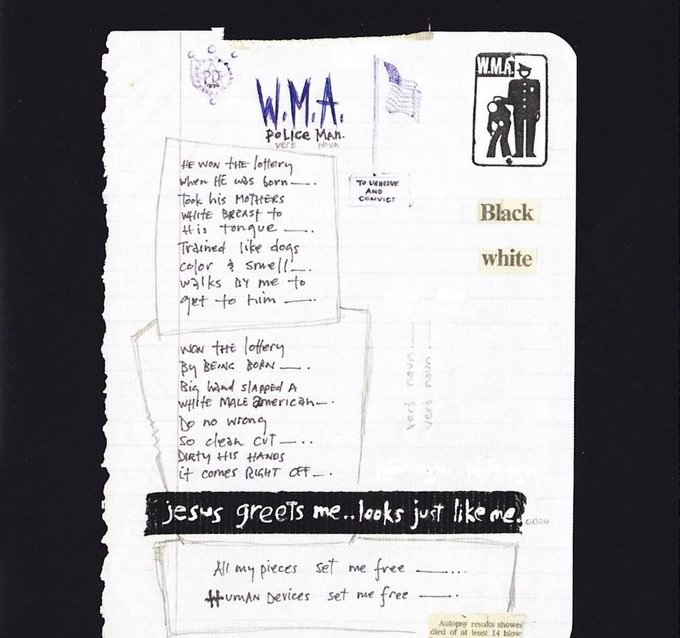 PD
W.M.A.
POLICE MAN.
VERB NOUN
W.M.A.
TO UENERVE
AND
CONVICT
HE WON THE lottery
when HE was born—.
Took his MOTHERS
WHITE BREAST to
His tongue —.
Trained like dogs
color & smell—.
walks by me to
get to him —.
Black
white
WON THE lottery
By BEING BORN —.
Big hand SLAPPED A
WHITE MALE american—.
Do no wrong
So clean cut —..
DIRTY HIS HANDS
it comes RIGHT OFF—.
verb noun
verb noun
jesus greets me..looks just like me.
All my pieces set me free —...
HUMAN Devices set me free —.
Autopsy results showed
died of at least 14 blow